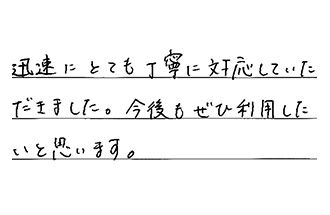 迅速にとても丁寧に対応していた
だきました。今後もぜひ利用した
いと思います。